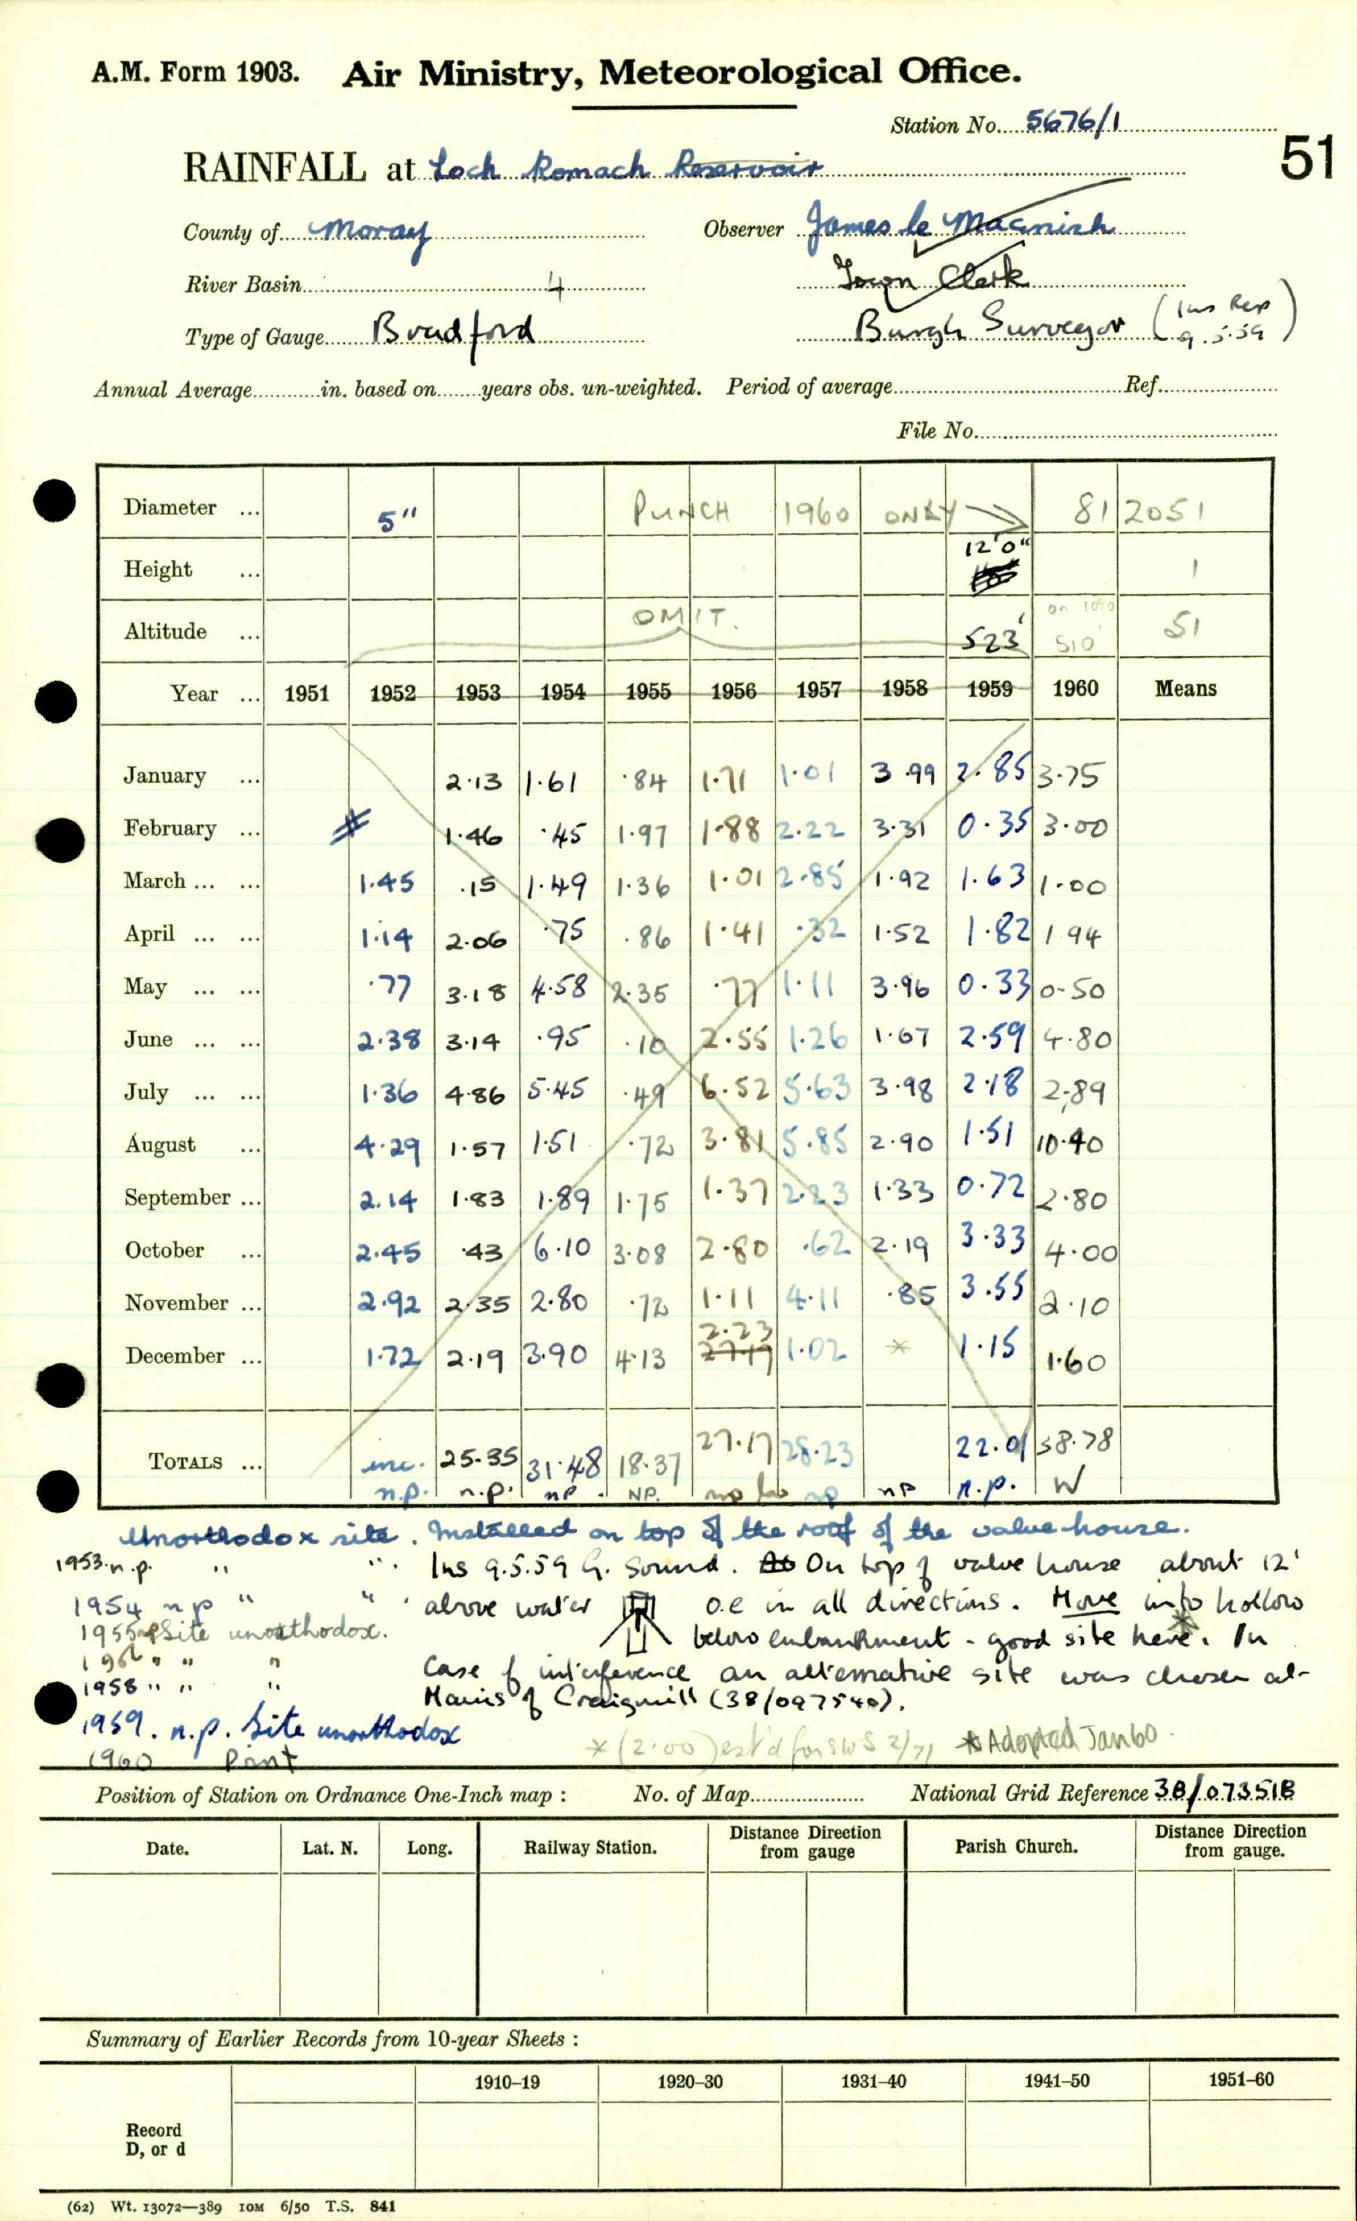 A.M. Form 1903. Air Ministry, Meteorological Office.
Station No. 5676/1
51
RAINFALL at Loch Romach Reservoir
County of Moray Observer James le Macnish
River Basin 4 Town Clerk
Type of Gauge Bradford Burgh Surveyor (Ins Rep 9.5.59)
Annual Average in. based on years obs. un-weighted. Period of average Ref.
File No.
Diameter ... 5" PUNCH 1960 ONLY 81 2051
Height ... 12'0" 1
Altitude ... OMIT. 523' 510' 51
Year ... 1951 1952 1953 1954 1955 1956 1957 1958 1959 1960 Means
January ... 2.13 1.61 .84 1.71 1.01 3.99 2.85 3.75
February ... # 1.46 .45 1.97 1.88 2.22 3.31 0.35 3.00
March ... ... 1.45 .15 1.49 1.36 1.01 2.85 1.92 1.63 1.00
April ... ... 1.14 2.06 .75 .86 1.41 .32 1.52 1.82 1 94
May ... ... .77 3.18 4.58 2.35 .77 1.11 3.96 0.33 0-50
June ... ... 2.38 3.14 .95 .10 2.55 1.26 1.67 2.59 4.80
July ... ... 1.36 4.86 5.45 .49 6.52 5.63 3.98 2.18 2.89
August ... 4.29 1.57 1.51 .72 3.81 5.85 2.90 1.51 10.40
September ... 2.14 1.83 1.89 1.75 1.37 2.23 1.33 0.72 2.80
October ... 2.45 .43 6.10 3.08 2.80 .62 2.19 3.33 4.00
November ... 2.92 2.35 2.80 .72 1.11 4.11 .85 3.55 2.10
2.23
December ... 1.72 2.19 3.90 4.13 27.17 1.02 * 1.15 1.60
TOTALS ... inc. 25.35 31.48 18.37 27.17 28.23 22.01 38.78
n.p. n.p. np. NP. np np np n.p. W
Unorthodox site. Installed on top of the roof of the valve house.
1953 n.p. " " Ins 9.5.59 G. Sound. On top of valve house about 12'
1954 n p " " above water o.e in all directions. Move into hollow
1955 Site unorthodox. below embankment - good site here. In
195 " " " case of interference an alternative site was chosen at
1958 " " " Mains of Craigmill (38/097540).
1959. n.p. Site unorthodox
1960 Print * (2.00) est'd for SWS 2/71 * Adopted Jan 60.
Position of Station on Ordnance One-Inch map : No. of Map National Grid Reference 38/073518
Date. Lat. N. Long. Railway Station. Distance Direction from gauge Parish Church. Distance Direction from gauge.
Summary of Earlier Records from 10-year Sheets :
1910–19 1920–30 1931–40 1941–50 1951–60
Record
D, or d
(62) Wt. 13072—389 10M 6/50 T.S. 841